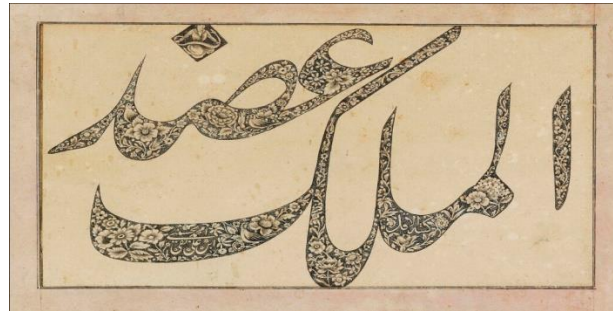 عضد
الملك